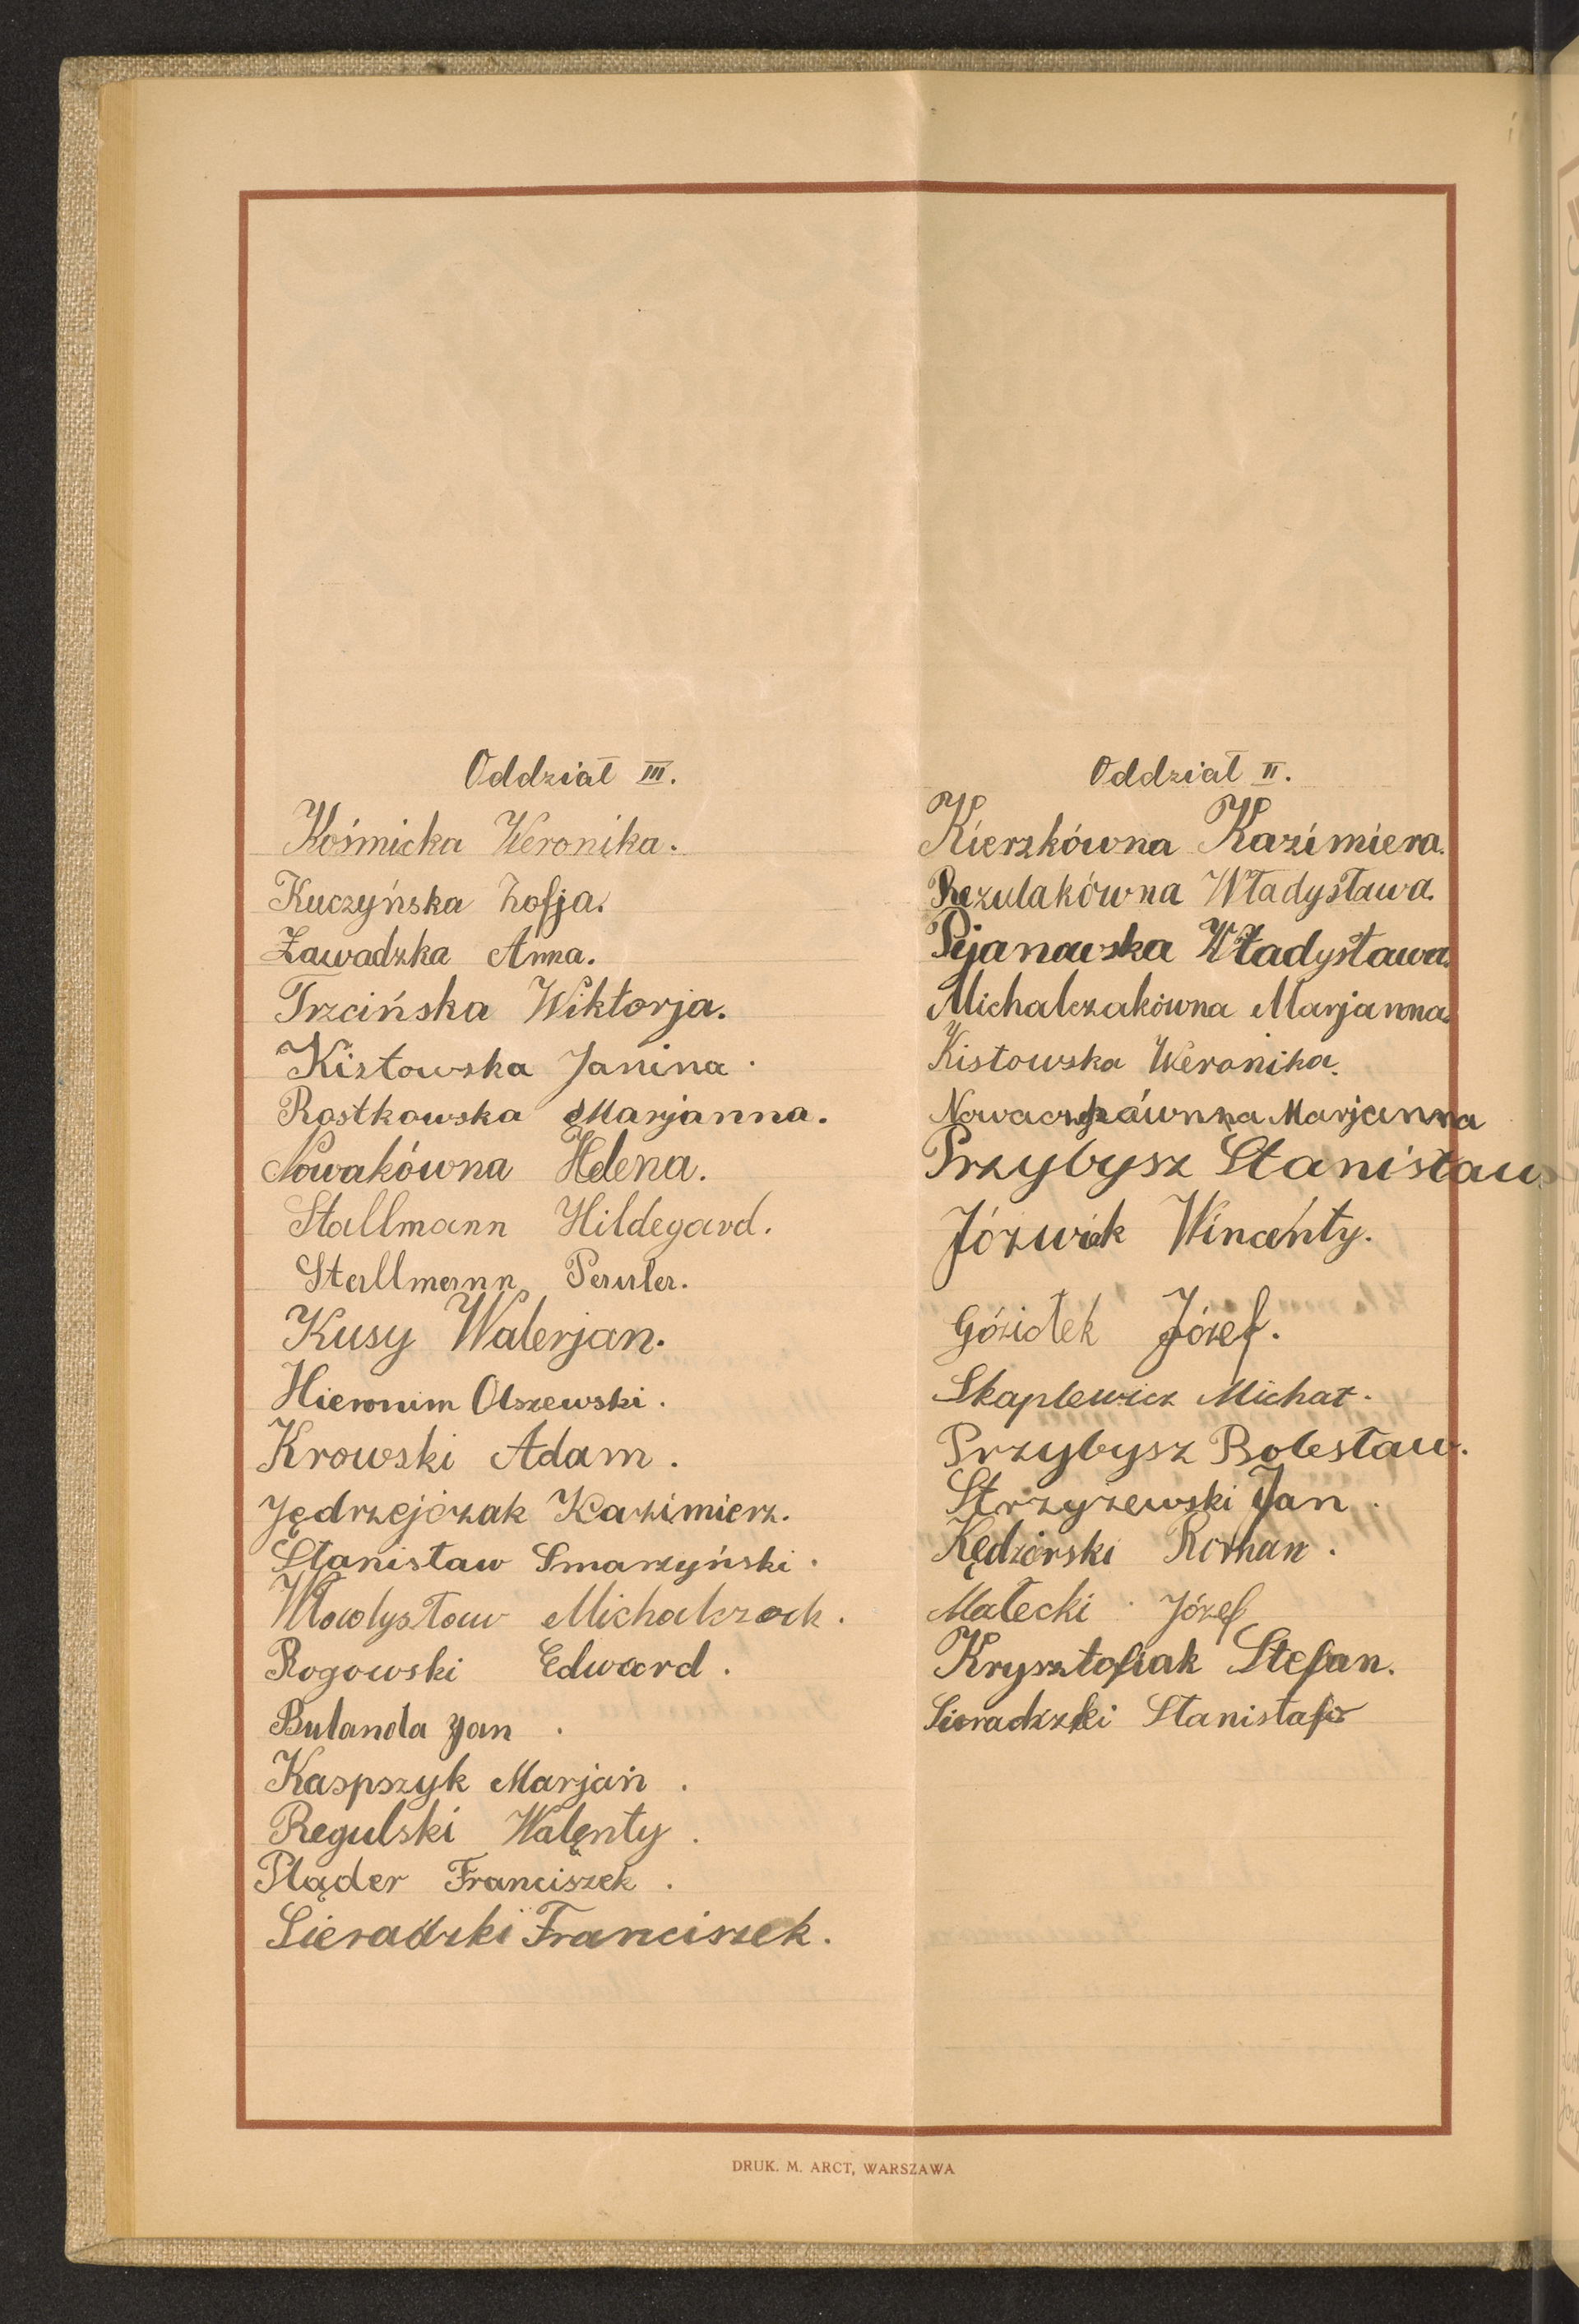 Oddział III.
Kośmicka Weronika.
Kuczyńska Zofja.
Zawadzka Anna.
Trzcińska Wiktorja.
Kistowska Janina.
Rostkowska Marjanna.
Nowakówna Helena.
Stallmann Hildegard.
Stallmann
Kusy Walerjan.
Hieronim Olszewski.
Krowski Adam.
Jędrzejczak Kazimierz.
Stanisław Smarzyński.
Władysław Michalczak.
Rogowski Edward.
Bulanda Jan.
Kaspszyk Marjan.
Regulski Walenty.
Pląder Franciszek.
Sieradzki Franciszek.
Oddział II.
Kierzkówna Kazimiera.
Rezulakówna Władysława.
Pijanowska Władysława.
Michalczakówna Marjanna.
Kistowska Weronika.
Marjanna
Przybysz Stanisław.
Józwiak Wincenty.
Góziołek Józef.
Skaplewicz Michał.
Przybysz Bolesław.
Strzyżewski Jan.
Kędziorski Roman.
Małecki Józef
Krysztofiak Stefan.
Sieradzki Stanisław
DRUK. M. ARCT, WARSZAWA